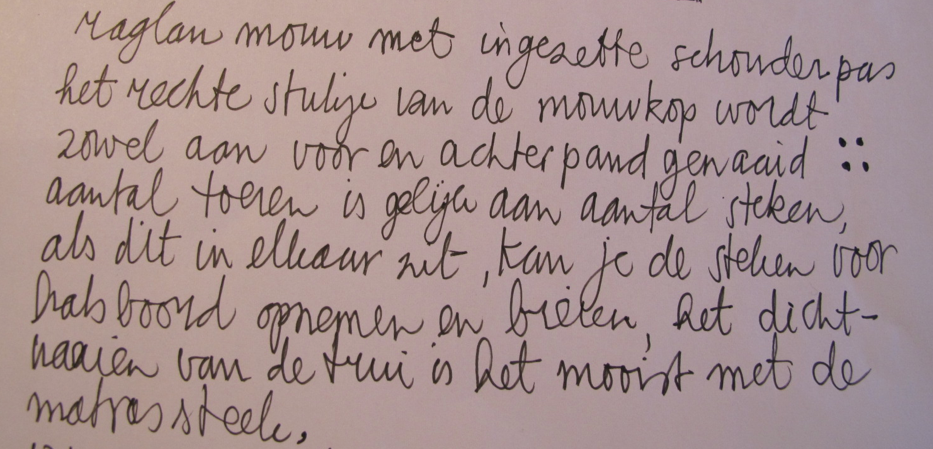 raglan mouw met ingezette schouderpas
het rechte stukje van de mouwkop wordt
zowel aan voor en achterpand genaaid ::
aantal toeren is gelijk aan aantal steken,
als dit in elkaar zit, kan je de steken voor
halsboord opnemen en breien, het dicht-
naaien van de trui is het mooist met de
matrassteek.